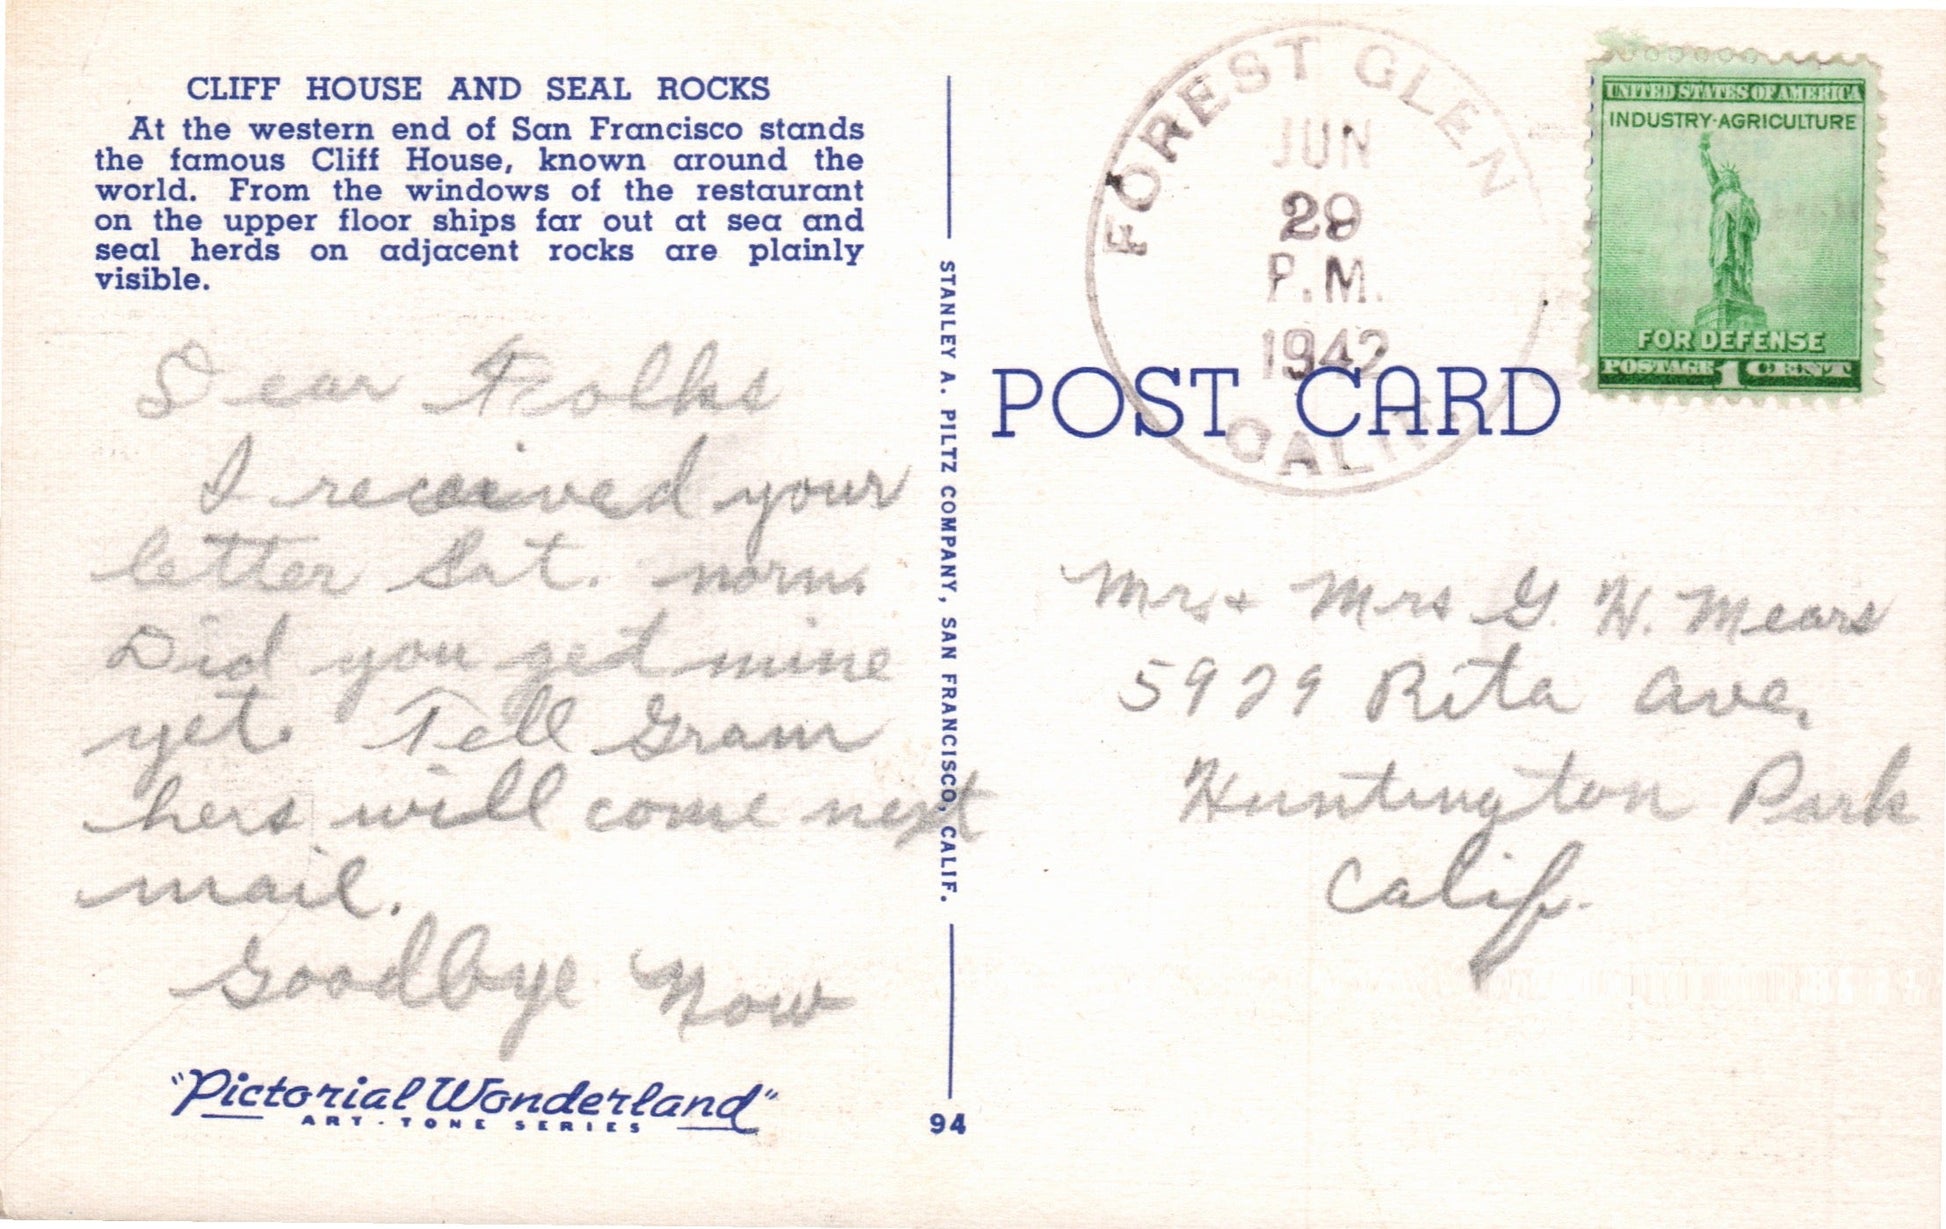 CLIFF HOUSE AND SEAL ROCKS
At the western end of San Francisco stands
the famous Cliff House, known around the
world. From the windows of the restaurant
on the upper floor ships far out at sea and
seal herds on adjacent rocks are plainly
visible.
Dear Folks
I received your
letter Sat. morn.
Did you get mine
yet. Tell Gram
hers will come next
mail.
Goodbye Now
"Pictorial Wonderland"
ART-TONE SERIES
STANLEY A. PILTZ COMPANY, SAN FRANCISCO, CALIF.
94
FOREST GLEN
JUN
29
P.M.
1942
CALIF.
POST CARD
UNITED STATES OF AMERICA
INDUSTRY-AGRICULTURE
FOR DEFENSE
POSTAGE 1 CENT
Mr. + Mrs G. W. Mears
5929 Rita Ave.
Huntington Park
Calif.